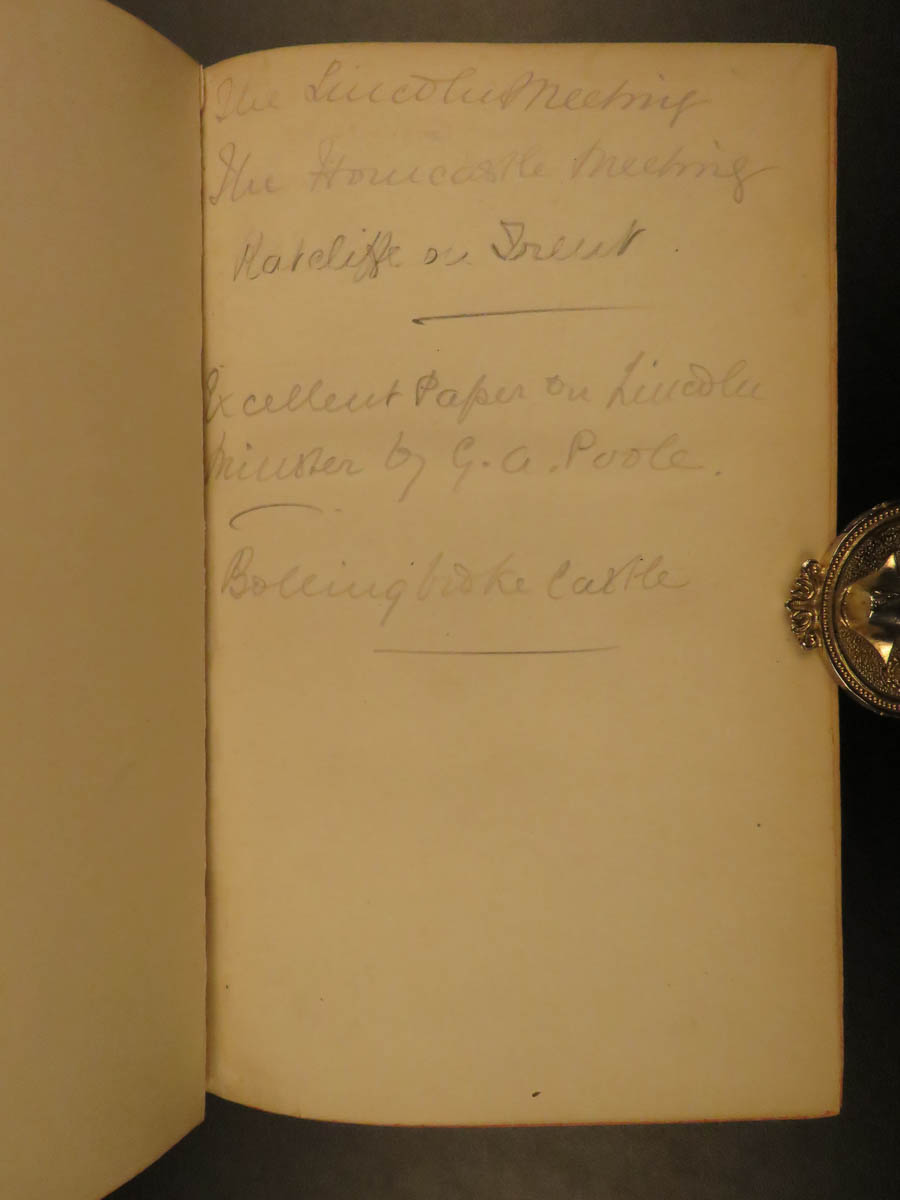 The Lincoln Meeting
The Horncastle Meeting
Ratcliffe on Trent.
Excellent Paper on Lincoln
Minster by G. A. Poole.
Bolingbroke Castle